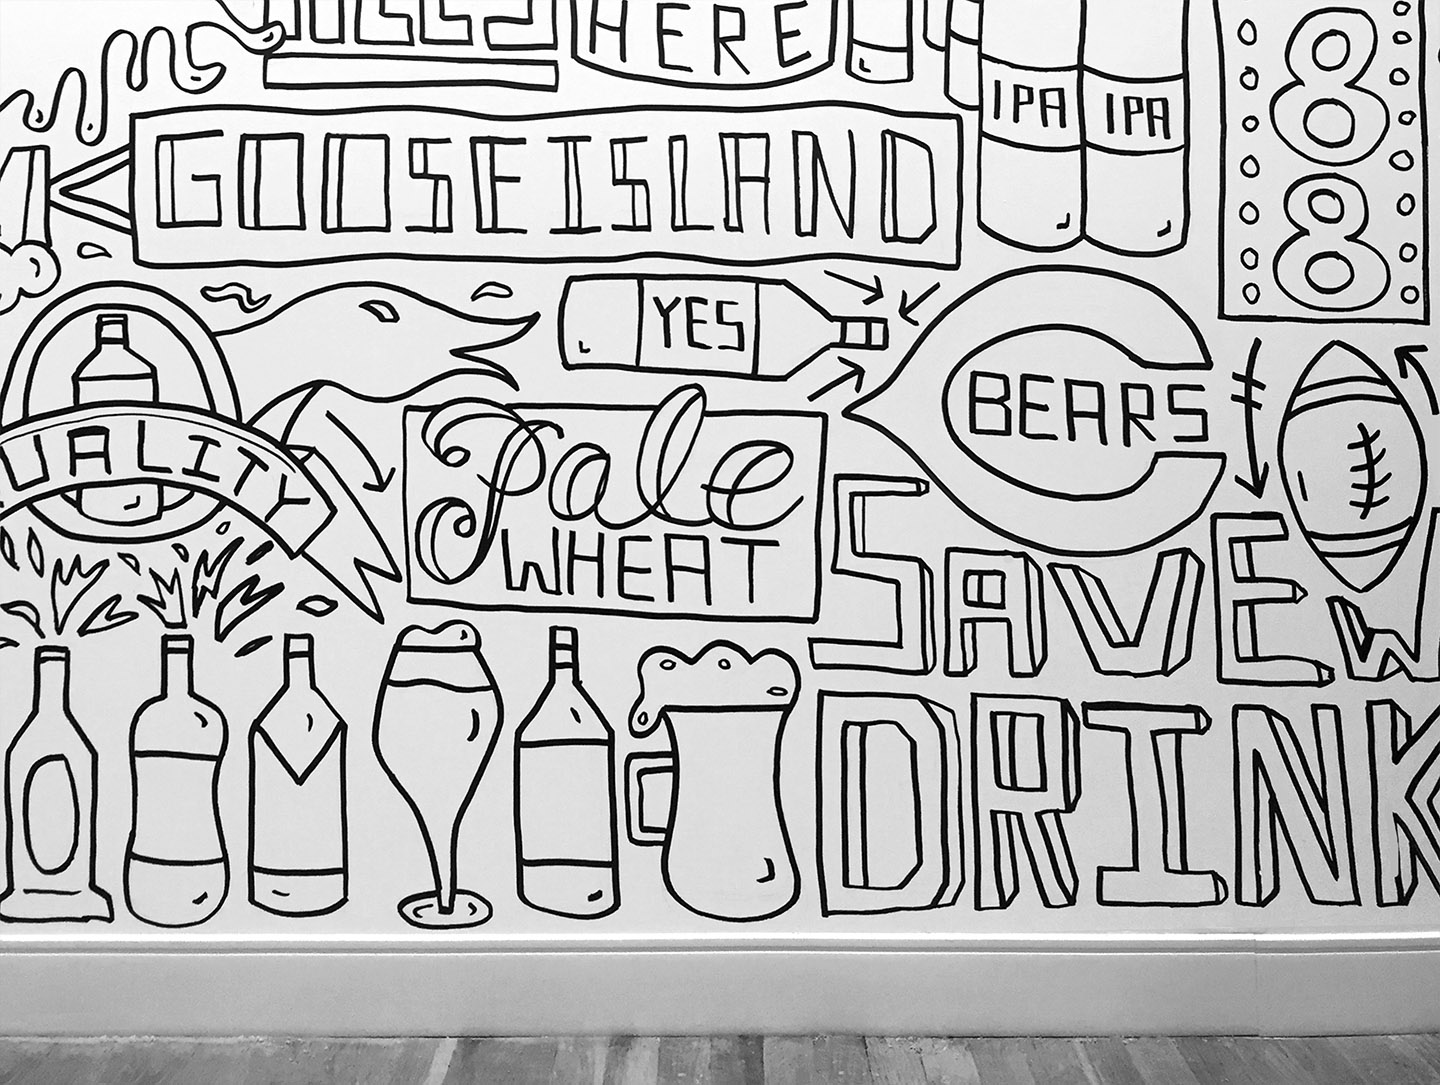 HERE
IPA IPA
88
GOOSE ISLAND
YES
BEARS
UALITY
Pale
WHEAT
SAVE W
DRINK